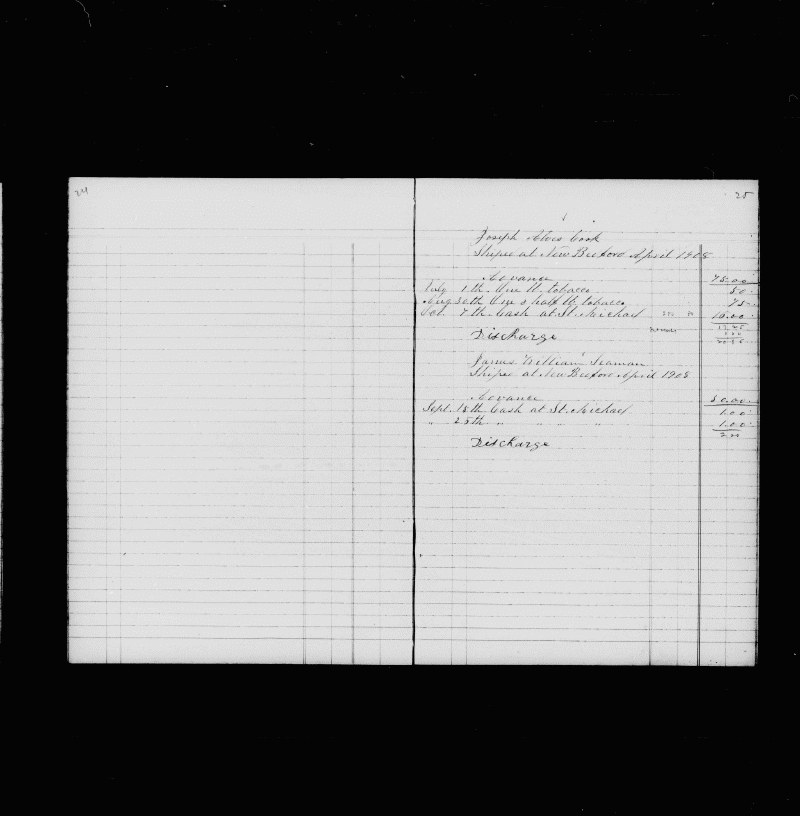 24
25
Joseph Alves Cook
Shiped at New Bedford April 1908
Advance 75.00
July 1th One lb tobacco 50
Aug. 30th One & half lb tobacco 75
Oct. 7th Cash at St. Michael 10.00
Discharge
James William Seaman
Shiped at New Bedford April 1908
Advance 50.00
Sept. 18th Cash at St. Michael 1.00
" 25th " " " " 1.00
2.00
Discharge